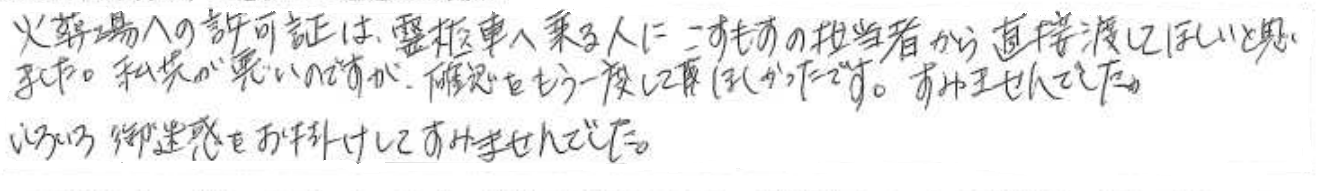 火葬場への許可証は、霊柩車へ乗る人にこすもすの担当者から直接渡してほしいと思い
ました。私共が悪いのですが、確認をもう一度して頂ほしかったです。すみませんでした。
いろいろ御迷惑をお掛けしてすみませんでした。